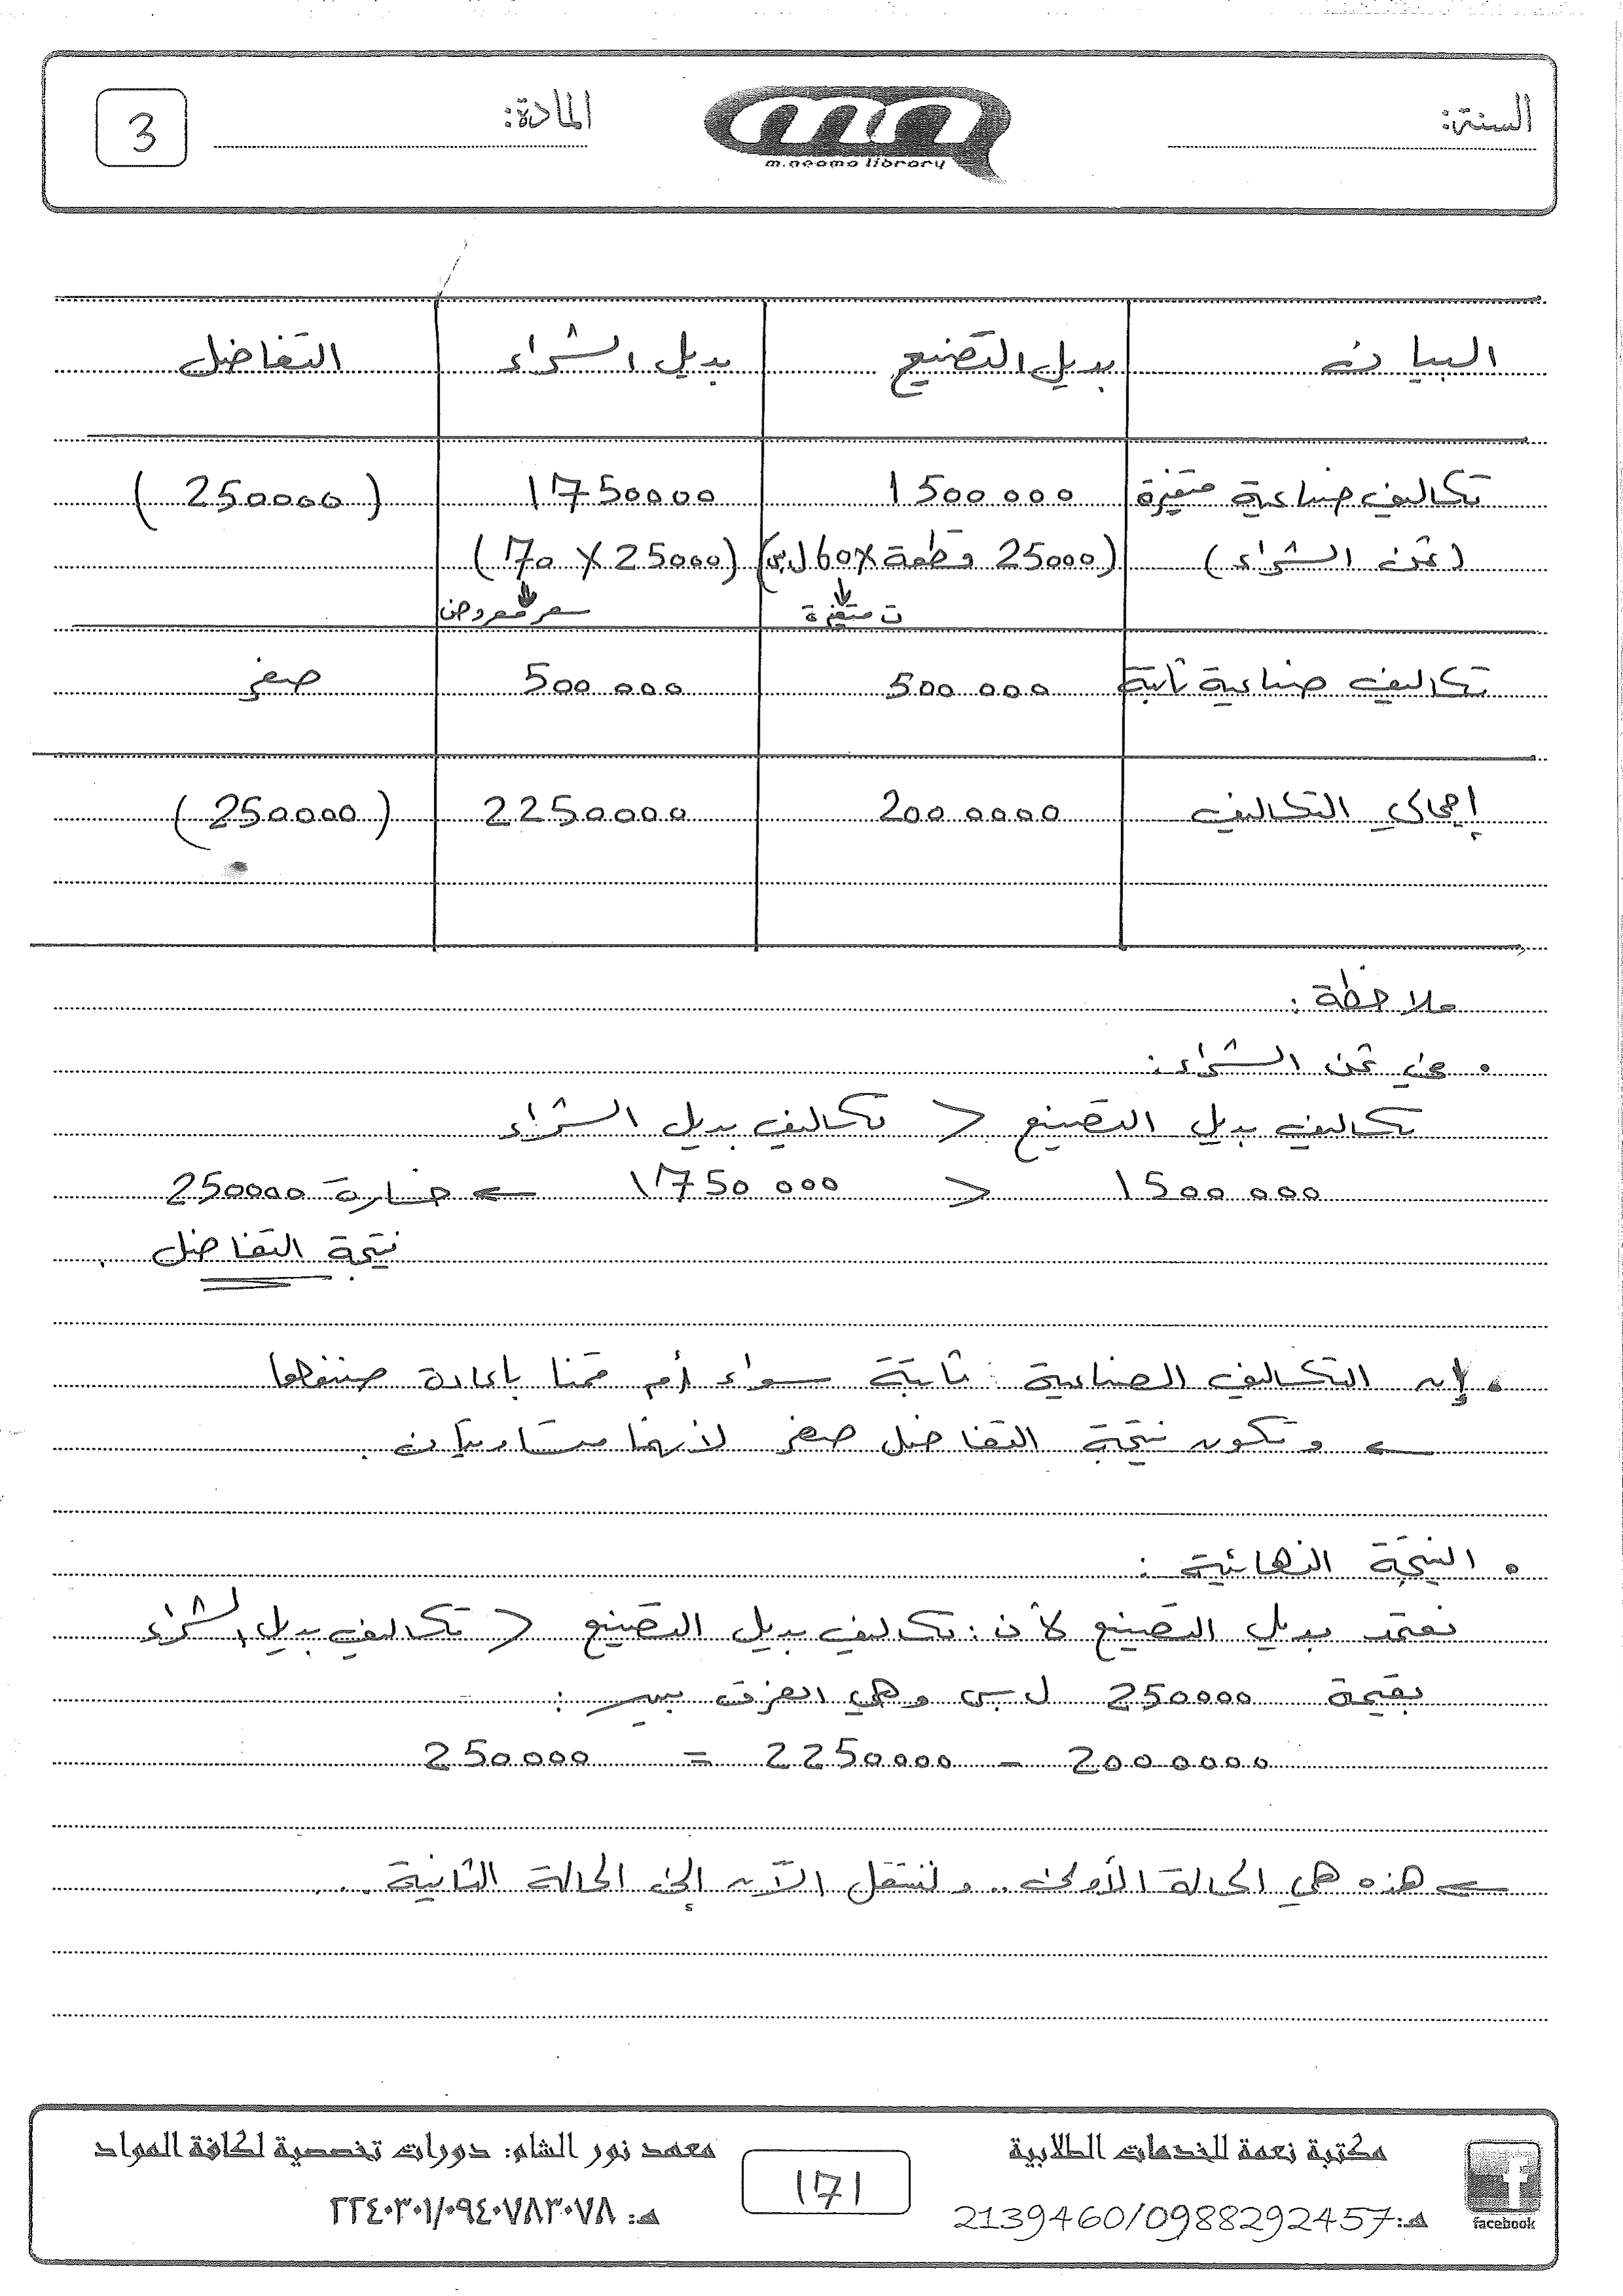 السنة:
m.neoma library
المادة:
3
البيان بديل التصنيع بديل الشراء التفاضل
تكاليف صناعية متغيرة 1500000 1750000 (250000)
(ثمن الشراء) (25000 قطعة × 60 ل.س) (25000 × 70)
ت متغيرة سعر معروض
تكاليف صناعية ثابتة 500000 500000 صفر
إجمالي التكاليف 2000000 2250000 (250000)
ملاحظة:
• في ثمن الشراء:
تكاليف بديل التصنيع < تكاليف بديل الشراء
1500000 < 1750000 ← خسارة 250000
نتيجة التفاضل.
• إن التكاليف الصناعية ثابتة سواء أم قمنا بإعادة
← وتكون نتيجة التفاضل صفر لأنهما متساويتان.
• النتيجة النهائية:
نعتمد بديل التصنيع لأن: تكاليف بديل التصنيع < تكاليف بديل الشراء
بقيمة 250000 ل.س وهي الفرق بين:
2000000 - 2250000 = 250000
← هذه هي الحالة الأولى.. و لننتقل الآن إلى الحالة الثانية...
مكتبة نعمة للخدمات الطلابية
هـ: 2139460/0988292457
facebook
171
معهد نور الشام: دورات تخصصية لكافة المواد
هـ: ٢٢٤٠٣٠١/٠٩٤٠٧٨٣٠٧٨